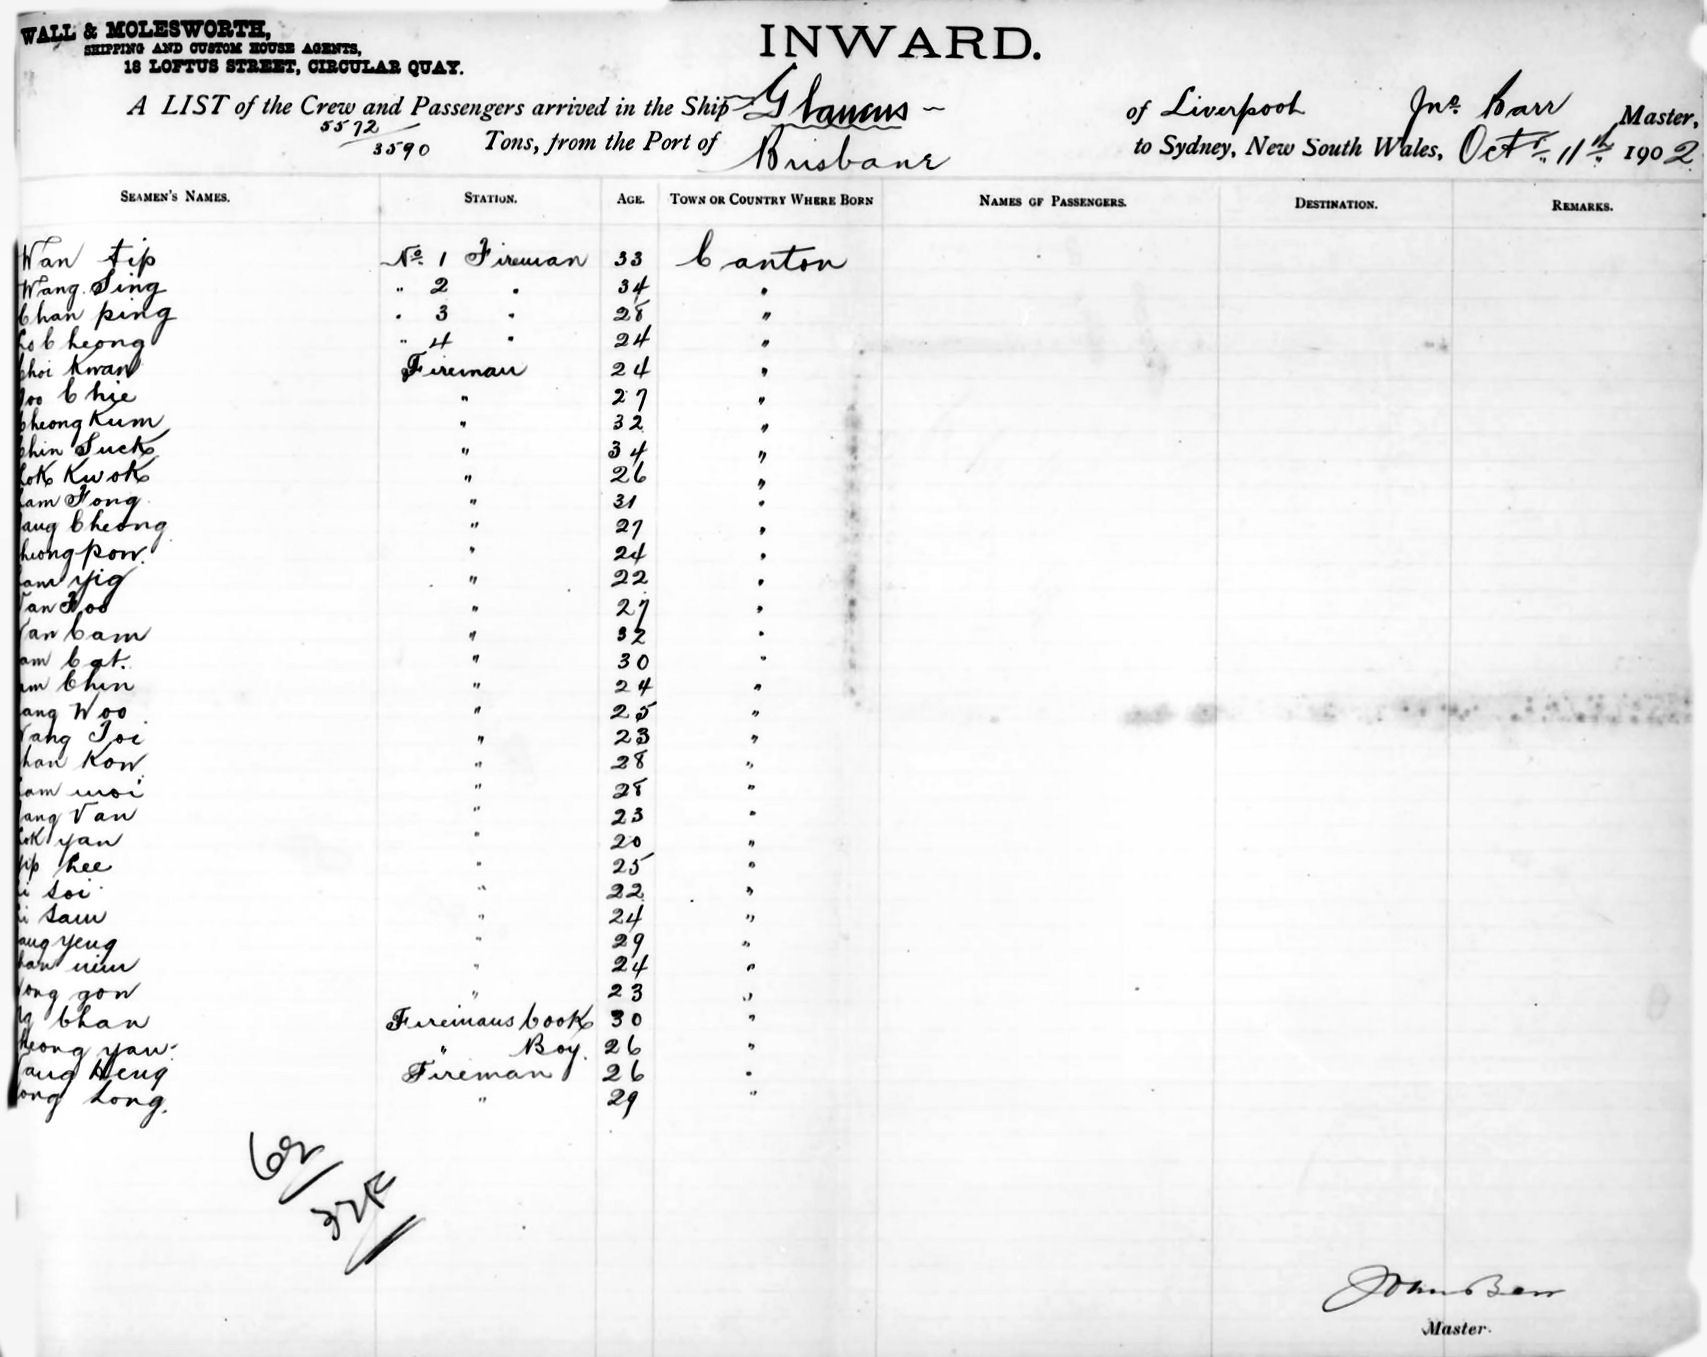 WALL & MOLESWORTH,
SHIPPING AND CUSTOM HOUSE AGENTS,
18 LOFTUS STREET, CIRCULAR QUAY.
INWARD.
A LIST of the Crew and Passengers arrived in the Ship Glaucus of Liverpool Jno. Barr Master,
5572/3590 Tons, from the Port of Brisbane to Sydney, New South Wales, Oct. 11th 1902
SEAMEN'S NAMES. STATION. AGE. TOWN OR COUNTRY WHERE BORN NAMES OF PASSENGERS. DESTINATION. REMARKS.
Wan tip No. 1 Fireman 33 Canton
Wang Sing " 2 " 34 "
Chan ping " 3 " 28 "
Lo Cheong " 4 " 24 "
Choi Kwan Fireman 24 "
Chie " 27 "
Cheong Kum " 32 "
Chin Suck " 34 "
Lok Kwok " 26 "
am Fong " 31 "
ang Cheong " 27 "
heong pow " 24 "
am yig " 22 "
an Foo " 27 "
an Cam " 32 "
am Cat. " 30 "
am Chin " 24 "
ang Woo " 25 "
ang Joi " 23 "
han Kow " 28 "
am moi " 28 "
ang Van " 23 "
ok yan " 20 "
ip hee " 25 "
i Soi " 22 "
i Sam " 24 "
ang yeng " 29 "
han nim " 24 "
ong gon " 23 "
Chan Firemans Cook 30 "
heong yan " Boy. 26 "
ang Heng Fireman 26 "
ong Long. " 29 "
62
John Barr
Master.